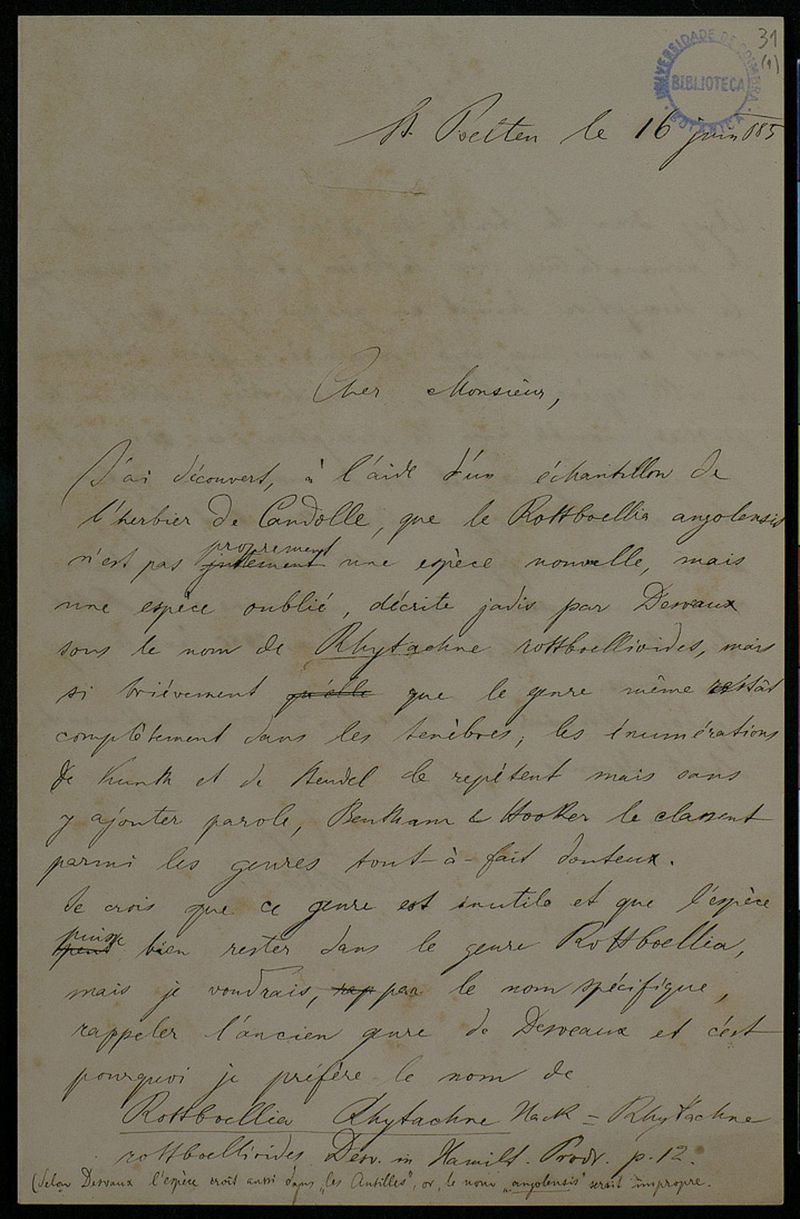 31
(1)
UNIVERSIDADE DE COIMBRA
BIBLIOTECA
BOTANICA
St. Poelten le 16 juin 885
Cher Monsieur,
J'ai découvert, à l'aide d'un échantillon de
l'herbier De Candolle, que le Rottboellia angolensis
n'est pas justement proprement une espèce nouvelle, mais
une espèce oublié, décrite jadis par Desvaux
sous le nom de Rhytachne rottboellioides, mais
si brièvement qu'elle que le genre même restât
complètement dans les tenèbres; les énumérations
de Kunth et de Steudel le repètent mais sans
y ajouter parole, Bentham & Hooker le classent
parmi les genres tout-à-fait douteux.
Je crois que ce genre est inutile et que l'espèce
puisse bien rester dans le genre Rottboellia,
mais je voudrais, rap par le nom spécifique,
rappeler l'ancien genre de Desveaux et c'est
pourquoi je préfère le nom de
Rottboellia Rhytachne Hack = Rhytachne
rottboellioides Desv. in Hamilt. Prodr. p. 12.
(Selon Desvaux l'espèce croît aussi dans „les Antilles", or, le nom „angolensis" serait impropre.